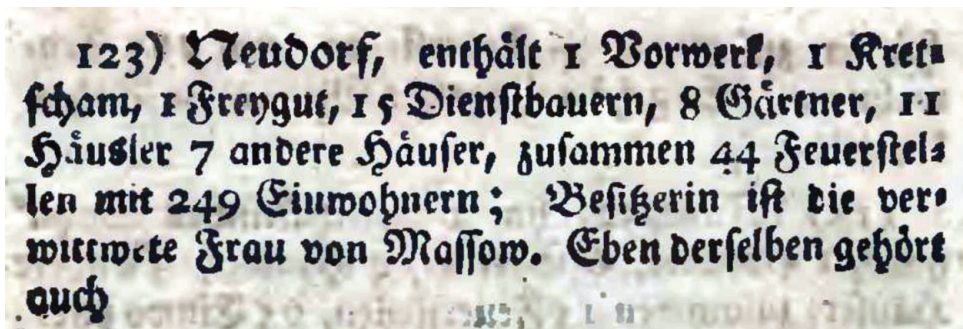 123) Neudorf, enthält 1 Vorwerk, 1 Kret-
scham, 1 Freygut, 15 Dienstbauern, 8 Gärtner, 11
Häusler 7 andere Häuser, zusammen 44 Feuerstel-
len mit 249 Einwohnern; Besitzerin ist die ver-
wittwete Frau von Massow. Eben derselben gehört
auch